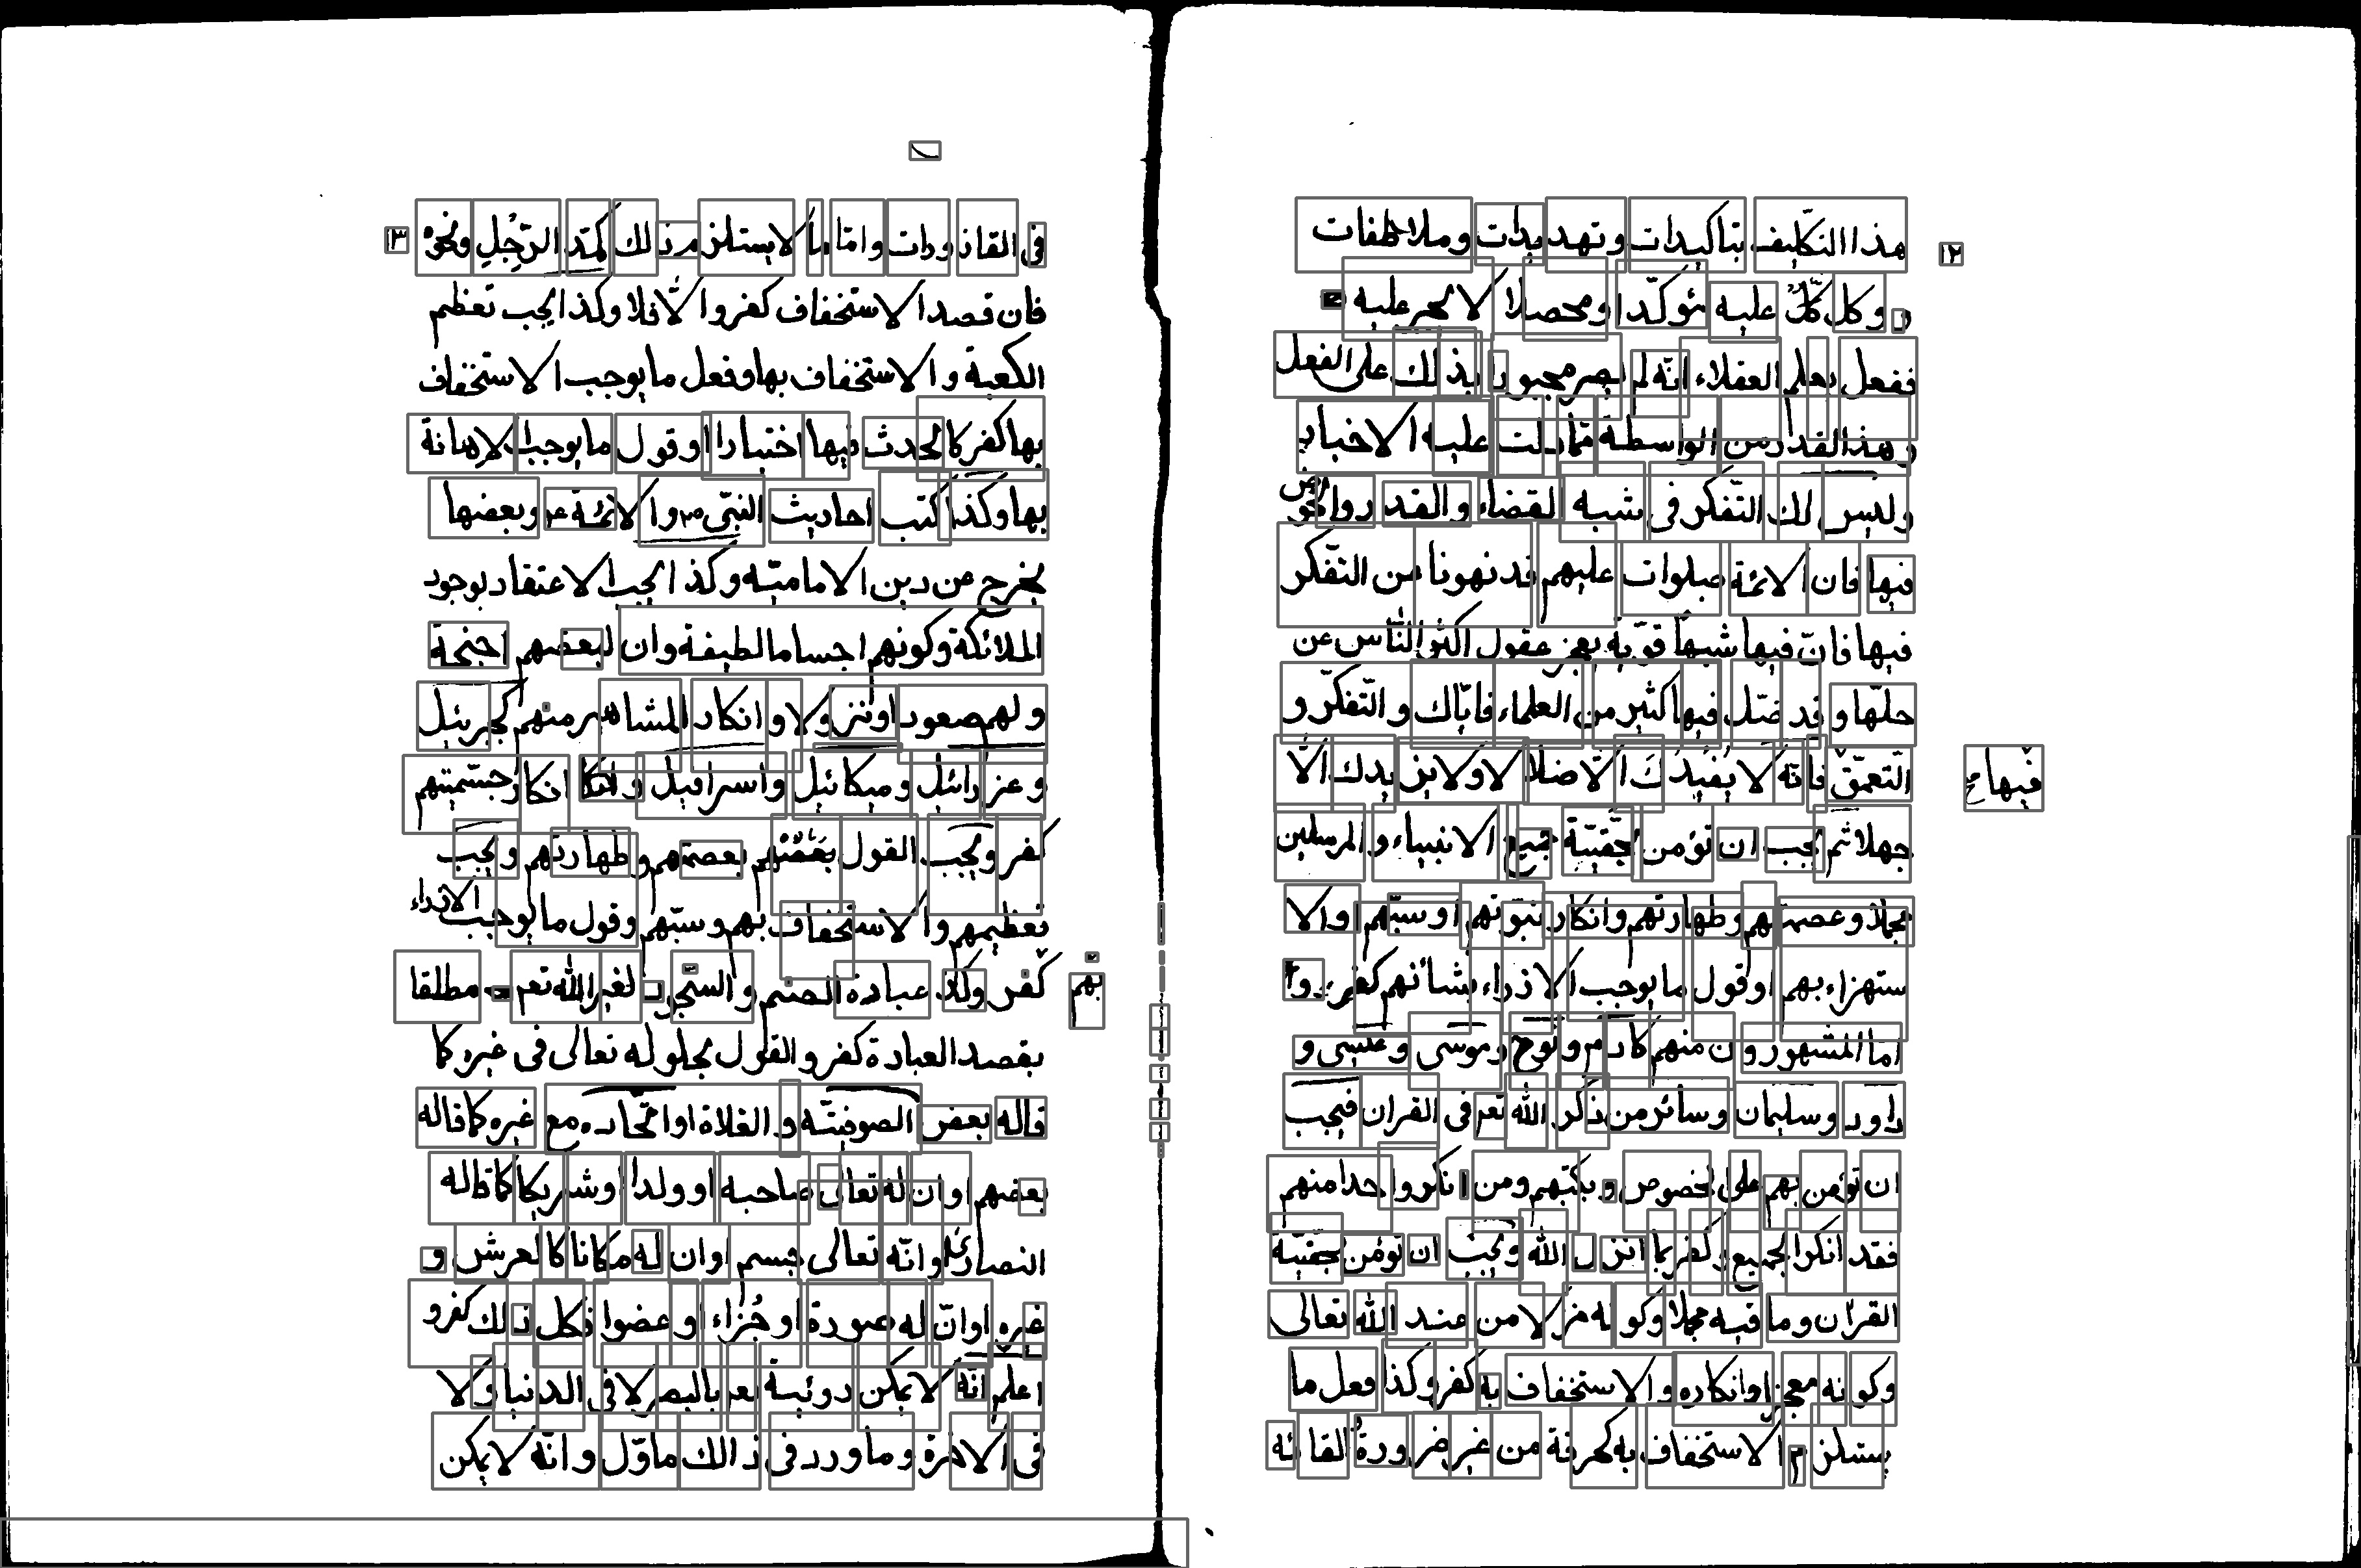 ١٢
هذا التكليف بتاكيدات وتهديدات وملاطفات
وكل كلّ عليه مؤكّدا ومحصلا لا لجبر عليه
ففعل يعلم العقلاء انّه لم يصر مجبورا بذلك على الفعل
وهذا القدر من الواسطة ممّا دلت عليه الاخبار
وليس لك التّفكر فى شبه القضاء والقدر والخوض
فيها فان الائمّة صلوات عليهم قد نهونا من التفكر
فيها فانّ فيها شبها قويّة يعجز عقول اكثر النّاس عن
حلّها وقد ضلّ فيها كثير من العلماء فايّاك والتّفكّر و
التّعمّق فيها فانّه لا يفيدك الّا ضلالا ولا يزيدك الّا
جهلا ثم يجب ان تؤمن بحقيّة جميع الانبياء والمرسلين
مجملا وعصمتهم وطهارتهم وانكار نبوّتهم او سبّهم والا
ستهزاء بهم او قول ما يوجب الازراء بشانهم كفر وا
اما المشهورون منهم كادم ونوح وموسى وعيسى و
داود وسليمان وسائر من ذكر الله تعر فى القران فيجب
ان تؤمن بهم على الخصوص وبكتبهم ومن انكر واحدا منهم
فقد انكر الجميع وكفر بما انزل الله ويجب ان تؤمن بحقيّة
القران وما فيه مجملا وكونه منزلا من عند الله تعالى
وكونه معجزا وانكاره والاستخفاف به كفر وكذا فعل ما
يستلزم الاستخفاف به كحرقة من غير ضرورة القائه
١٣
فى القاذورات وامّا ما لا يستلزم ذلك كمدّ الرّجل ونحوه
فان قصد الاستخفاف كفر والّا فلا وكذا يجب تعظيم
الكعبة والاستخفاف بها وفعل ما يوجب الاستخفاف
بها كفر كالحدث فيها اختيارا او قول ما يوجب الاهانة
بها وكذا كتب احاديث النبّى ص والائمّة ع وبعضها
يخرج عن دين الاماميّة وكذا يجب الاعتقاد بوجود
الملائكة وكونهم اجساما لطيفة وان لبعضهم اجنحة
ولهم صعود او نزولا وانكار المشاهير منهم كجبرئيل
وعزرائيل وميكائيل واسرافيل وانكار جسميتهم
كفر ويجب القول بعصمتهم وطهارتهم ويجب
تعظيمهم والاستخفاف بهم وسبّهم وقول ما يوجب الازراء
بهم كفر وكذا عبادة الصنم والسجود لغير الله تعر مطلقا
بقصد العبادة كفر والقول بحلوله تعالى فى غيره كا
قاله بعض الصوفيّة والغلاة او اتّحاده مع غيره كما قاله
بعضهم او ان له تعالى صاحبة او ولدا او شريكا كما قاله
النصارى وانّه تعالى جسم او ان له مكانا كالعرش و
غيره او انّ له صورة او جزاء او عضوا فكل ذلك كفر و
اعلم انّه لا يمكن رؤيته تعر بالبصر لا فى الدنيا ولا
فى الاخرة وما ورد فى ذلك مأوّل وانّه لا يمكن